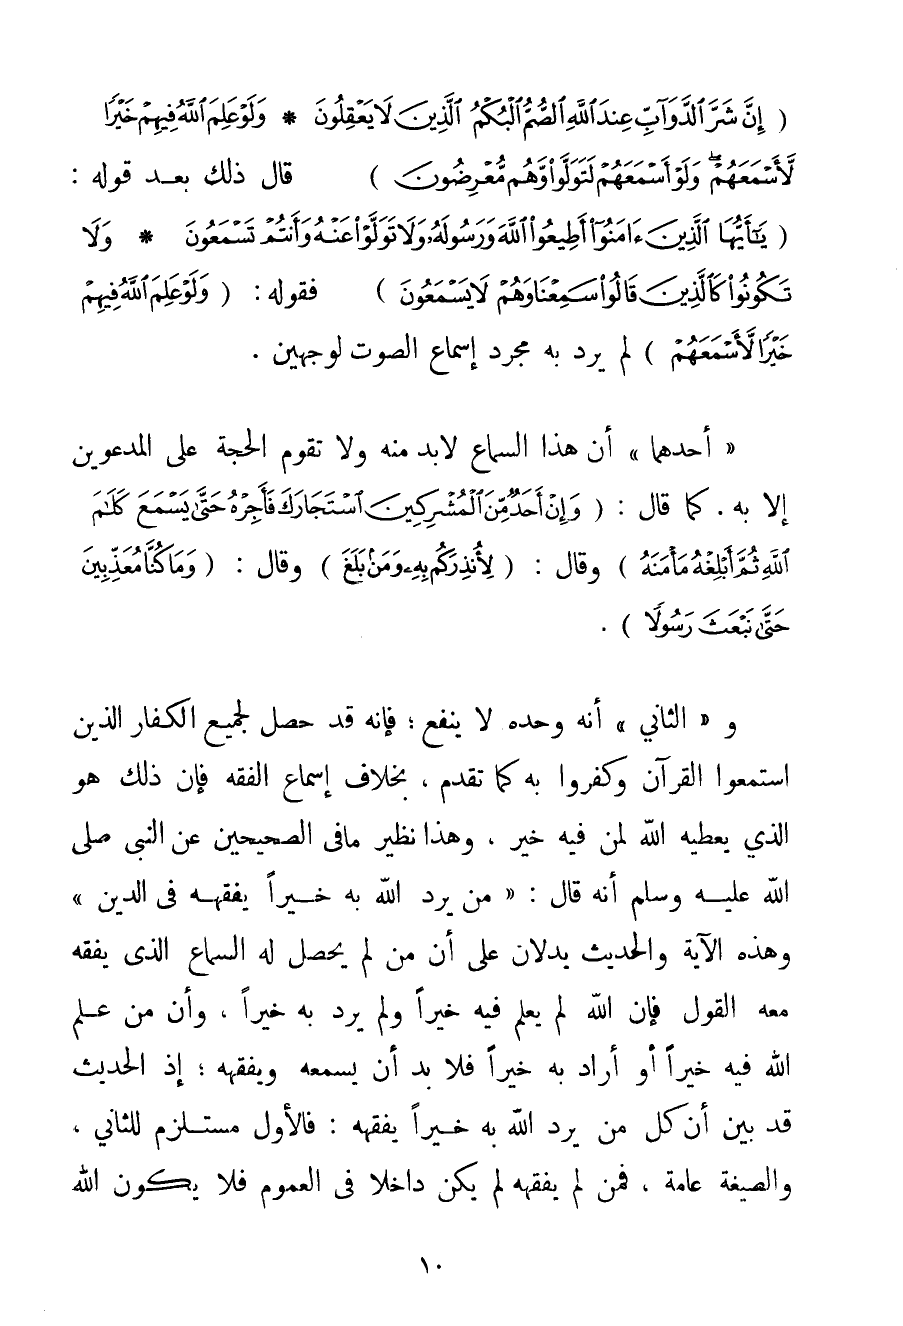 ( إِنَّ شَرَّ ٱلدَّوَآبِّ عِندَ ٱللَّهِ ٱلصُّمُّ ٱلْبُكْمُ ٱلَّذِينَ لَا يَعْقِلُونَ * وَلَوْ عَلِمَ ٱللَّهُ فِيهِمْ خَيْرًا
لَّأَسْمَعَهُمْ ۖ وَلَوْ أَسْمَعَهُمْ لَتَوَلَّوا۟ وَّهُم مُّعْرِضُونَ ) قال ذلك بعد قوله :
( يَٰٓأَيُّهَا ٱلَّذِينَ ءَامَنُوٓا۟ أَطِيعُوا۟ ٱللَّهَ وَرَسُولَهُۥ وَلَا تَوَلَّوْا۟ عَنْهُ وَأَنتُمْ تَسْمَعُونَ * وَلَا
تَكُونُوا۟ كَٱلَّذِينَ قَالُوا۟ سَمِعْنَا وَهُمْ لَا يَسْمَعُونَ ) فقوله : ( وَلَوْ عَلِمَ ٱللَّهُ فِيهِمْ
خَيْرًا لَّأَسْمَعَهُمْ ) لم يرد به مجرد إسماع الصوت لوجهين .
« أحدهما » أن هذا السماع لابد منه ولا تقوم الحجة على المدعوين
إلا به . كما قال : ( وَإِنْ أَحَدٌ مِّنَ ٱلْمُشْرِكِينَ ٱسْتَجَارَكَ فَأَجِرْهُ حَتَّىٰ يَسْمَعَ كَلَٰمَ
ٱللَّهِ ثُمَّ أَبْلِغْهُ مَأْمَنَهُ ) وقال : ( لِأُنذِرَكُم بِهِۦ وَمَنۢ بَلَغَ ) وقال : ( وَمَا كُنَّا مُعَذِّبِينَ
حَتَّىٰ نَبْعَثَ رَسُولًا ) .
و « الثاني » أنه وحده لا ينفع ؛ فإنه قد حصل لجميع الكفار الذين
استمعوا القرآن وكفروا به كما تقدم ، بخلاف إسماع الفقه فإن ذلك هو
الذي يعطيه الله لمن فيه خير ، وهذا نظير مافى الصحيحين عن النبى صلى
الله عليه وسلم أنه قال : « من يرد الله به خيراً يفقهه فى الدين »
وهذه الآية والحديث يدلان على أن من لم يحصل له السماع الذى يفقه
معه القول فإن الله لم يعلم فيه خيراً ولم يرد به خيراً ، وأن من علم
الله فيه خيراً أو أراد به خيراً فلا بد أن يسمعه ويفقهه ؛ إذ الحديث
قد بين أن كل من يرد الله به خيراً يفقهه : فالأول مستلزم للثاني ،
والصيغة عامة ، فمن لم يفقهه لم يكن داخلا فى العموم فلا يكون الله
١٠